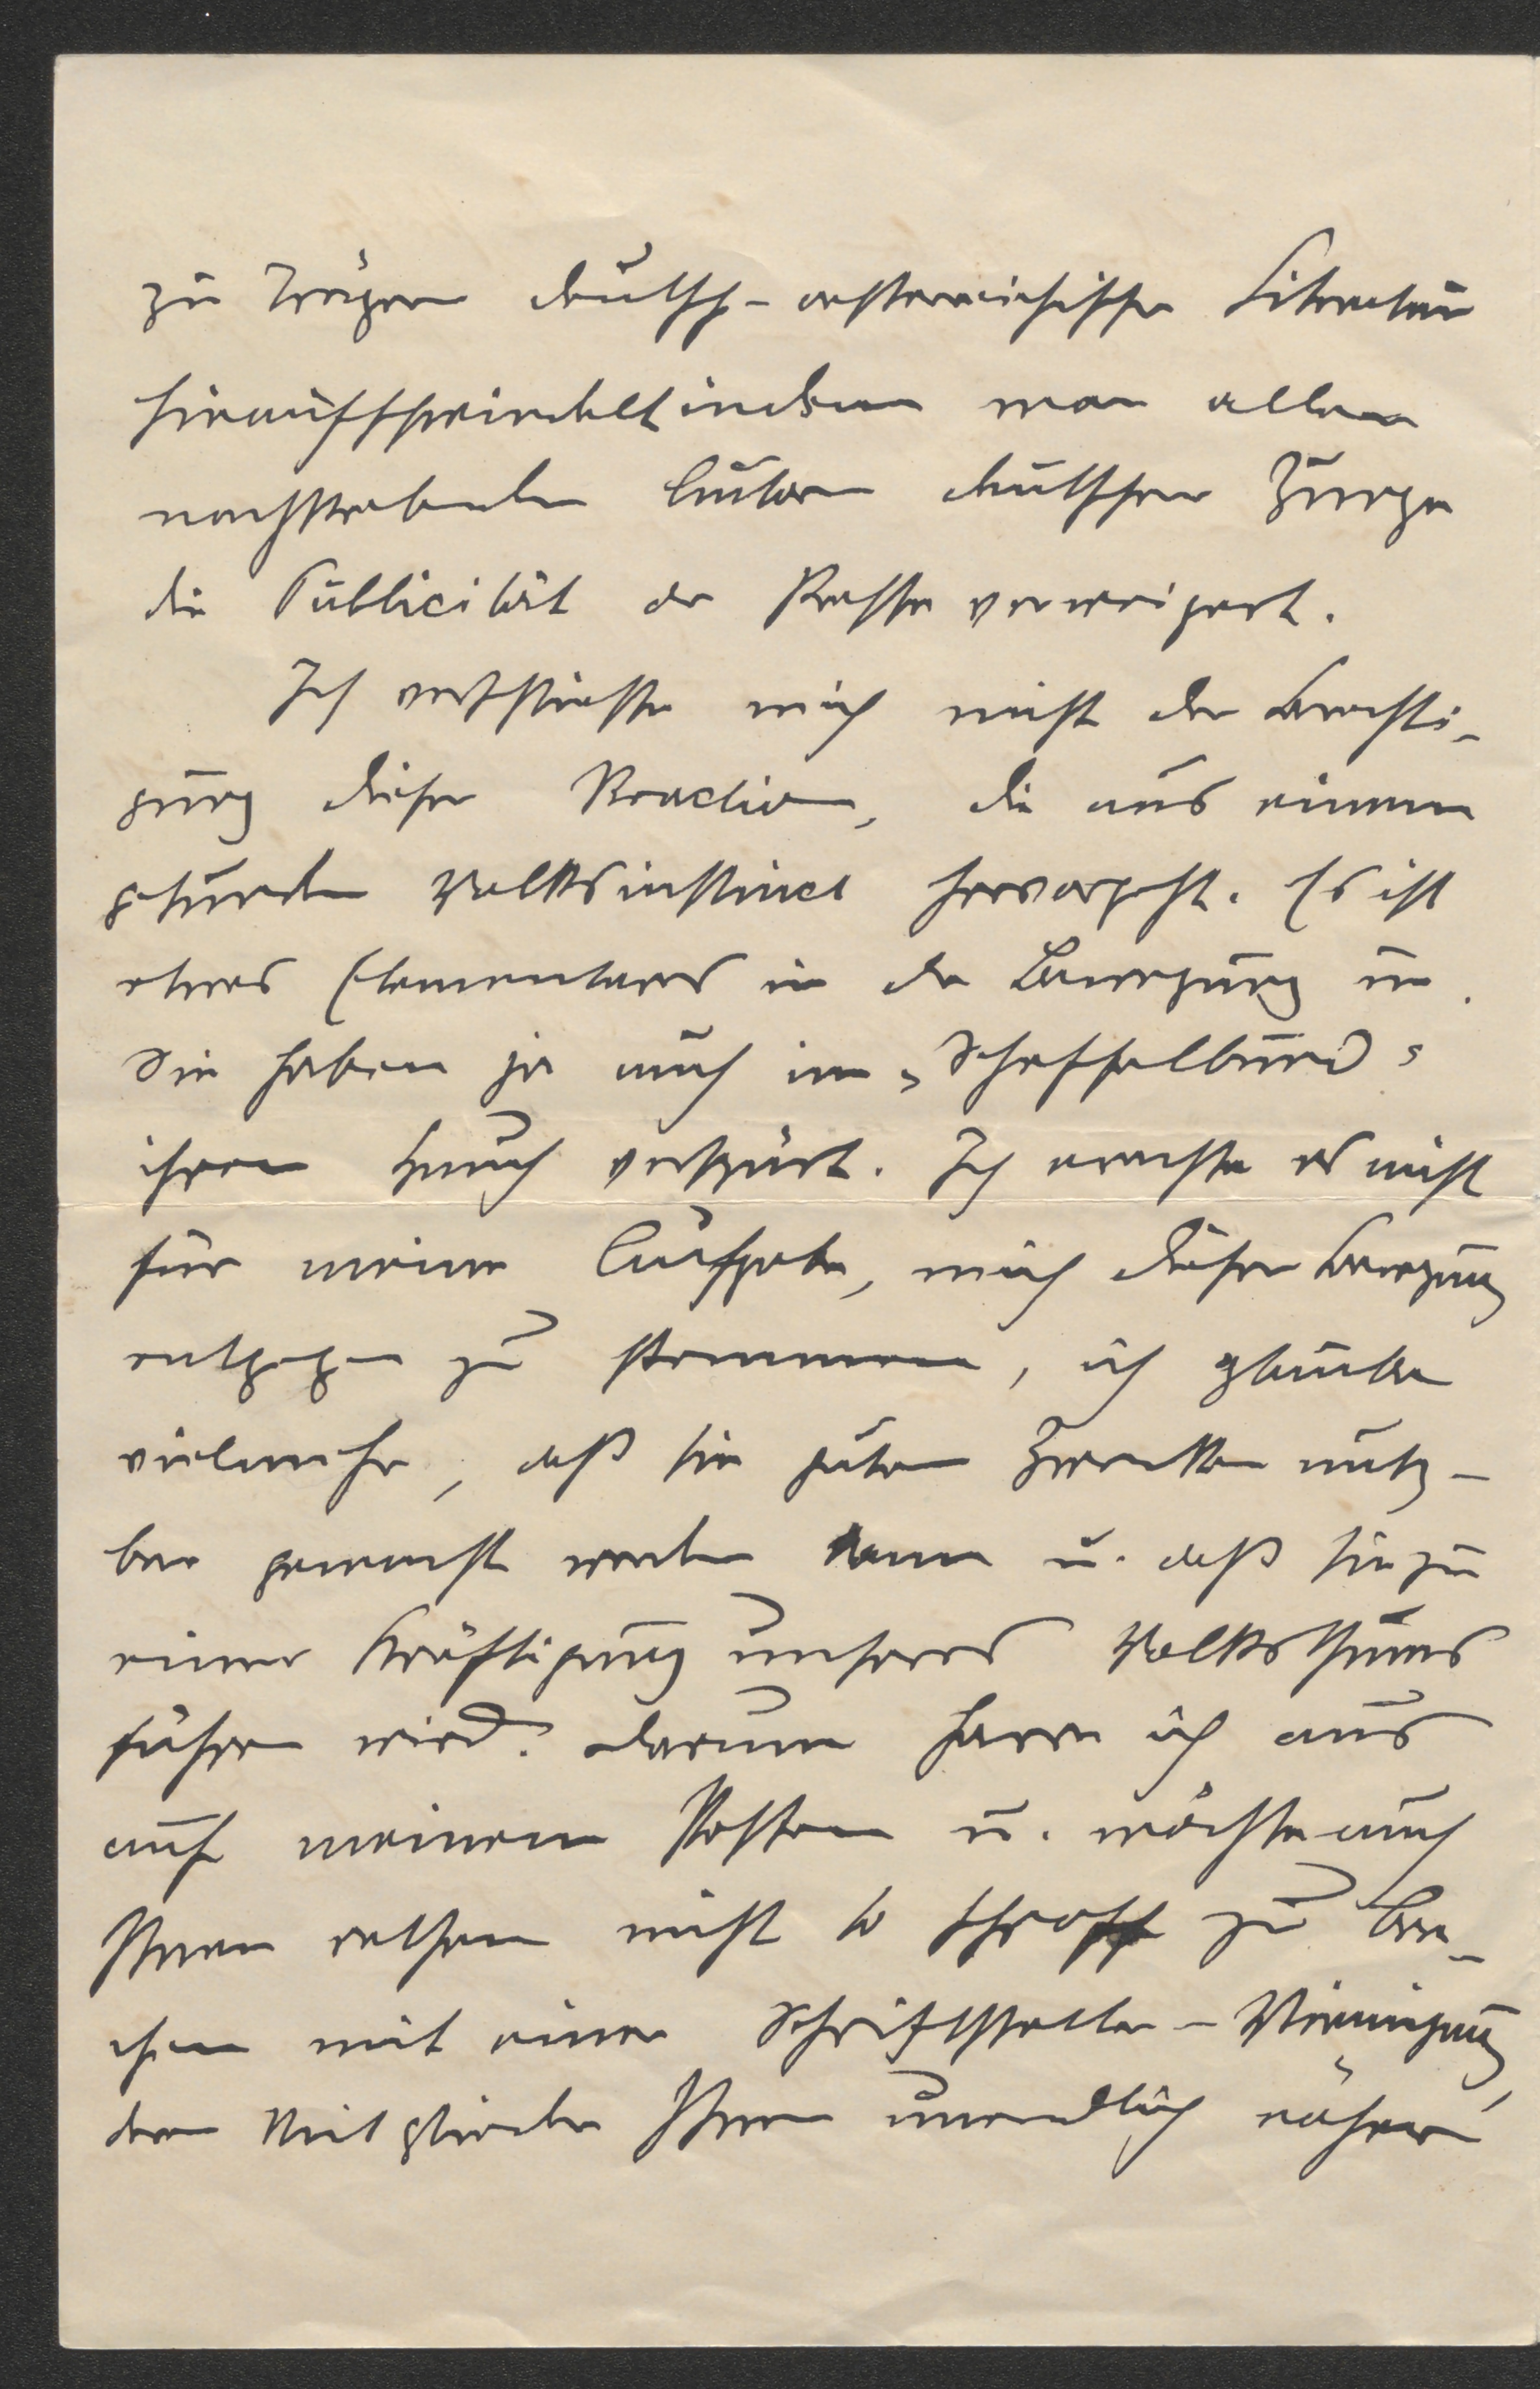 zu Trägern deutsch-oesterreichischer Literatur
hinaufschwindelt indem man allen
nachstrebenden Autoren deutscher Zunge
die Publicität der Presse verweigert.
Ich verschließe mich nicht der Berechti-
gung dieser Reaction, die aus einem
gesunden Volksinstinct hervorgeht. Es ist
etwas Elementares in der Bewegung u.
Sie haben ja auch im „Scheffelbund"
ihren Hauch verspürt. Ich erachte es nicht
für meine Aufgabe, mich dieser Bewegung
entgegen zu stemmen, ich glaube
vielmehr, daß sie guten Zwecken nutz-
bar gemacht werden kann u. daß sie zu
einer Kräftigung unseres Volksthums
führen wird. Darum harre ich aus
auf meinem Posten u. möchte auch
Ihnen rathen nicht so schroff zu bre-
chen mit einer Schriftsteller-Vereinigung,
deren Mitglieder Ihnen unendlich näher